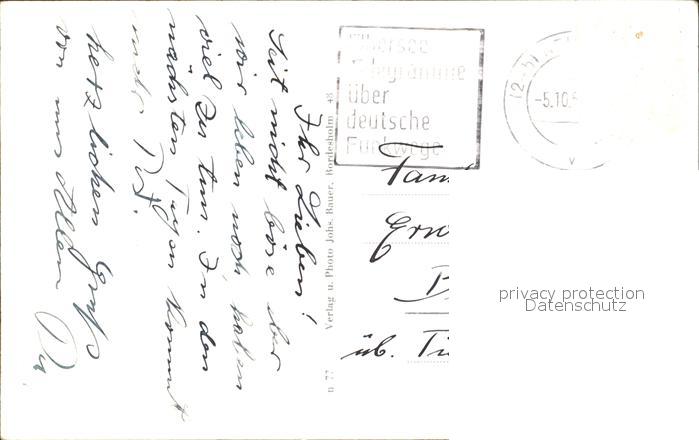 Ihr Lieben!
Seit nicht böse aber
wir leben noch, haben
viel zu tun. In den
nächsten Tagen kommt
mehr Post.
herzlichen Gruß
von uns Allen
Verlag u. Photo Johs. Bauer, Bordesholm 48
n 77
Übersee
Telegramme
über
deutsche
Funkwege
-5.10.5
Fam
Ern
üb. Ti
privacy protection
Datenschutz